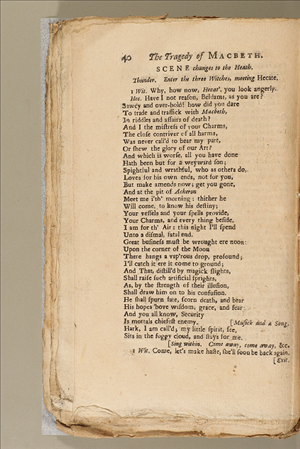 40 The Tragedy of MACBETH.
SCENE changes to the Heath.
Thunder. Enter the three Witches, meeting Hecate.
1 Wit. Why, how now, Hecat', you look angerly.
Hec. Have I not reason, Beldams, as you are?
Sawcy and over-bold! how did you dare
To trade and traffick with Macbeth,
In riddles and affairs of death?
And I the mistress of your Charms,
The close contriver of all harms,
Was never call'd to bear my part,
Or shew the glory of our Art?
And which is worse, all you have done
Hath been but for a weyward son;
Spightful and wrathful, who as others do,
Loves for his own ends, not for you.
But make amends now; get you gone,
And at the pit of Acheron
Meet me i'th' morning: thither he
Will come, to know his destiny;
Your vessels and your spells provide,
Your Charms, and every thing beside.
I am for th' Air: this night I'll spend
Unto a dismal, fatal end.
Great business must be wrought ere noon:
Upon the corner of the Moon
There hangs a vap'rous drop, profound;
I'll catch it ere it come to ground;
And That, distill'd by magick slights,
Shall raise such artificial sprights,
As, by the strength of their illusion,
Shall draw him on to his confusion.
He shall spurn fate, scorn death, and bear
His hopes 'bove wisdom, grace, and fear:
And you all know, Security
Is mortals chiefest enemy. [Musick and a Song.
Hark, I am call'd; my little spirit, see,
Sits in the foggy cloud, and stays for me.
[Sing within. Come away, come away, &c.
1 Wit. Come, let's make haste, she'll soon be back again.
[Exit.